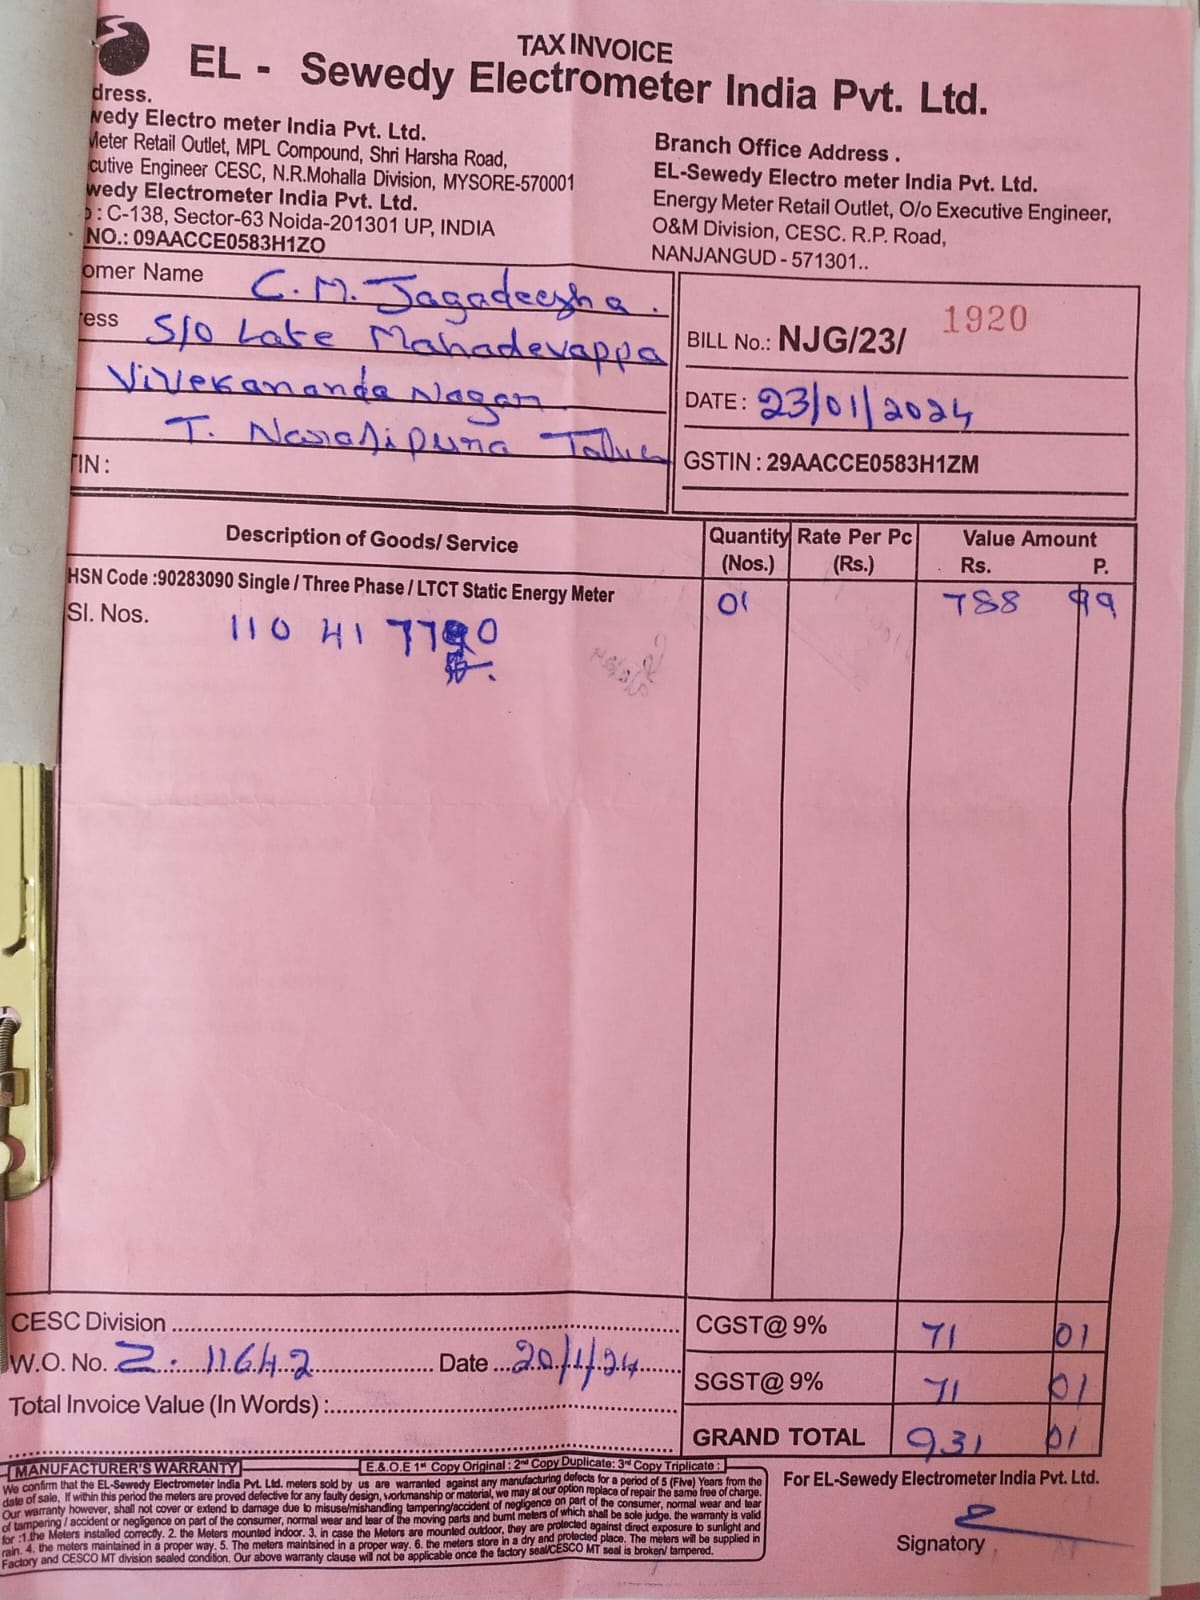 TAX INVOICE
EL - Sewedy Electrometer India Pvt. Ltd.
dress.
wedy Electro meter India Pvt. Ltd.
Meter Retail Outlet, MPL Compound, Shri Harsha Road,
cutive Engineer CESC, N.R.Mohalla Division, MYSORE-570001
wedy Electrometer India Pvt. Ltd.
: C-138, Sector-63 Noida-201301 UP, INDIA
NO.: 09AACCE0583H1ZO
Branch Office Address .
EL-Sewedy Electro meter India Pvt. Ltd.
Energy Meter Retail Outlet, O/o Executive Engineer,
O&M Division, CESC. R.P. Road,
NANJANGUD - 571301..
omer Name C. M. Jagadeesha.
ress S/o Late Mahadevappa
Vivekananda Nagar
T. Narasipura Taluk
TIN :
BILL No.: NJG/23/ 1920
DATE : 23/01/2024
GSTIN : 29AACCE0583H1ZM
Description of Goods/ Service Quantity (Nos.) Rate Per Pc (Rs.) Value Amount Rs. P.
HSN Code :90283090 Single / Three Phase / LTCT Static Energy Meter 01 788 99
Sl. Nos. 110 41 77
CESC Division
W.O. No. 2. 11642 Date 20/1/24
Total Invoice Value (In Words) :
CGST@ 9% 71 01
SGST@ 9% 71 01
GRAND TOTAL 931 01
MANUFACTURER'S WARRANTY E.& O.E 1st Copy Original : 2nd Copy Duplicate: 3rd Copy Triplicate :
We confirm that the EL-Sewedy Electrometer India Pvt. Ltd. meters sold by us are warranted against any manufacturing defects for a period of 5 (Five) Years from the
date of sale. If within this period the meters are proved defective for any faulty design, workmanship or material, we may at our option replace of repair the same free of charge.
Our warranty however, shall not cover or extend to damage due to misuse/mishandling tampering/accident of negligence on part of the consumer, normal wear and tear
of tampering / accident or negligence on part of the consumer, normal wear and tear of the moving parts and burnt meters of which shall be sole judge. the warranty is valid
for :1.the Meters installed correctly. 2. the Meters mounted indoor. 3. in case the Meters are mounted outdoor, they are protected against direct exposure to sunlight and
rain. 4. the meters maintained in a proper way. 5. The meters maintsined in a proper way. 6. the meters store in a dry and protected place. The meters will be supplied in
Factory and CESCO MT division sealed condition. Our above warranty clause will not be applicable once the factory seal/CESCO MT seal is broken/ tampered.
For EL-Sewedy Electrometer India Pvt. Ltd.
Signatory